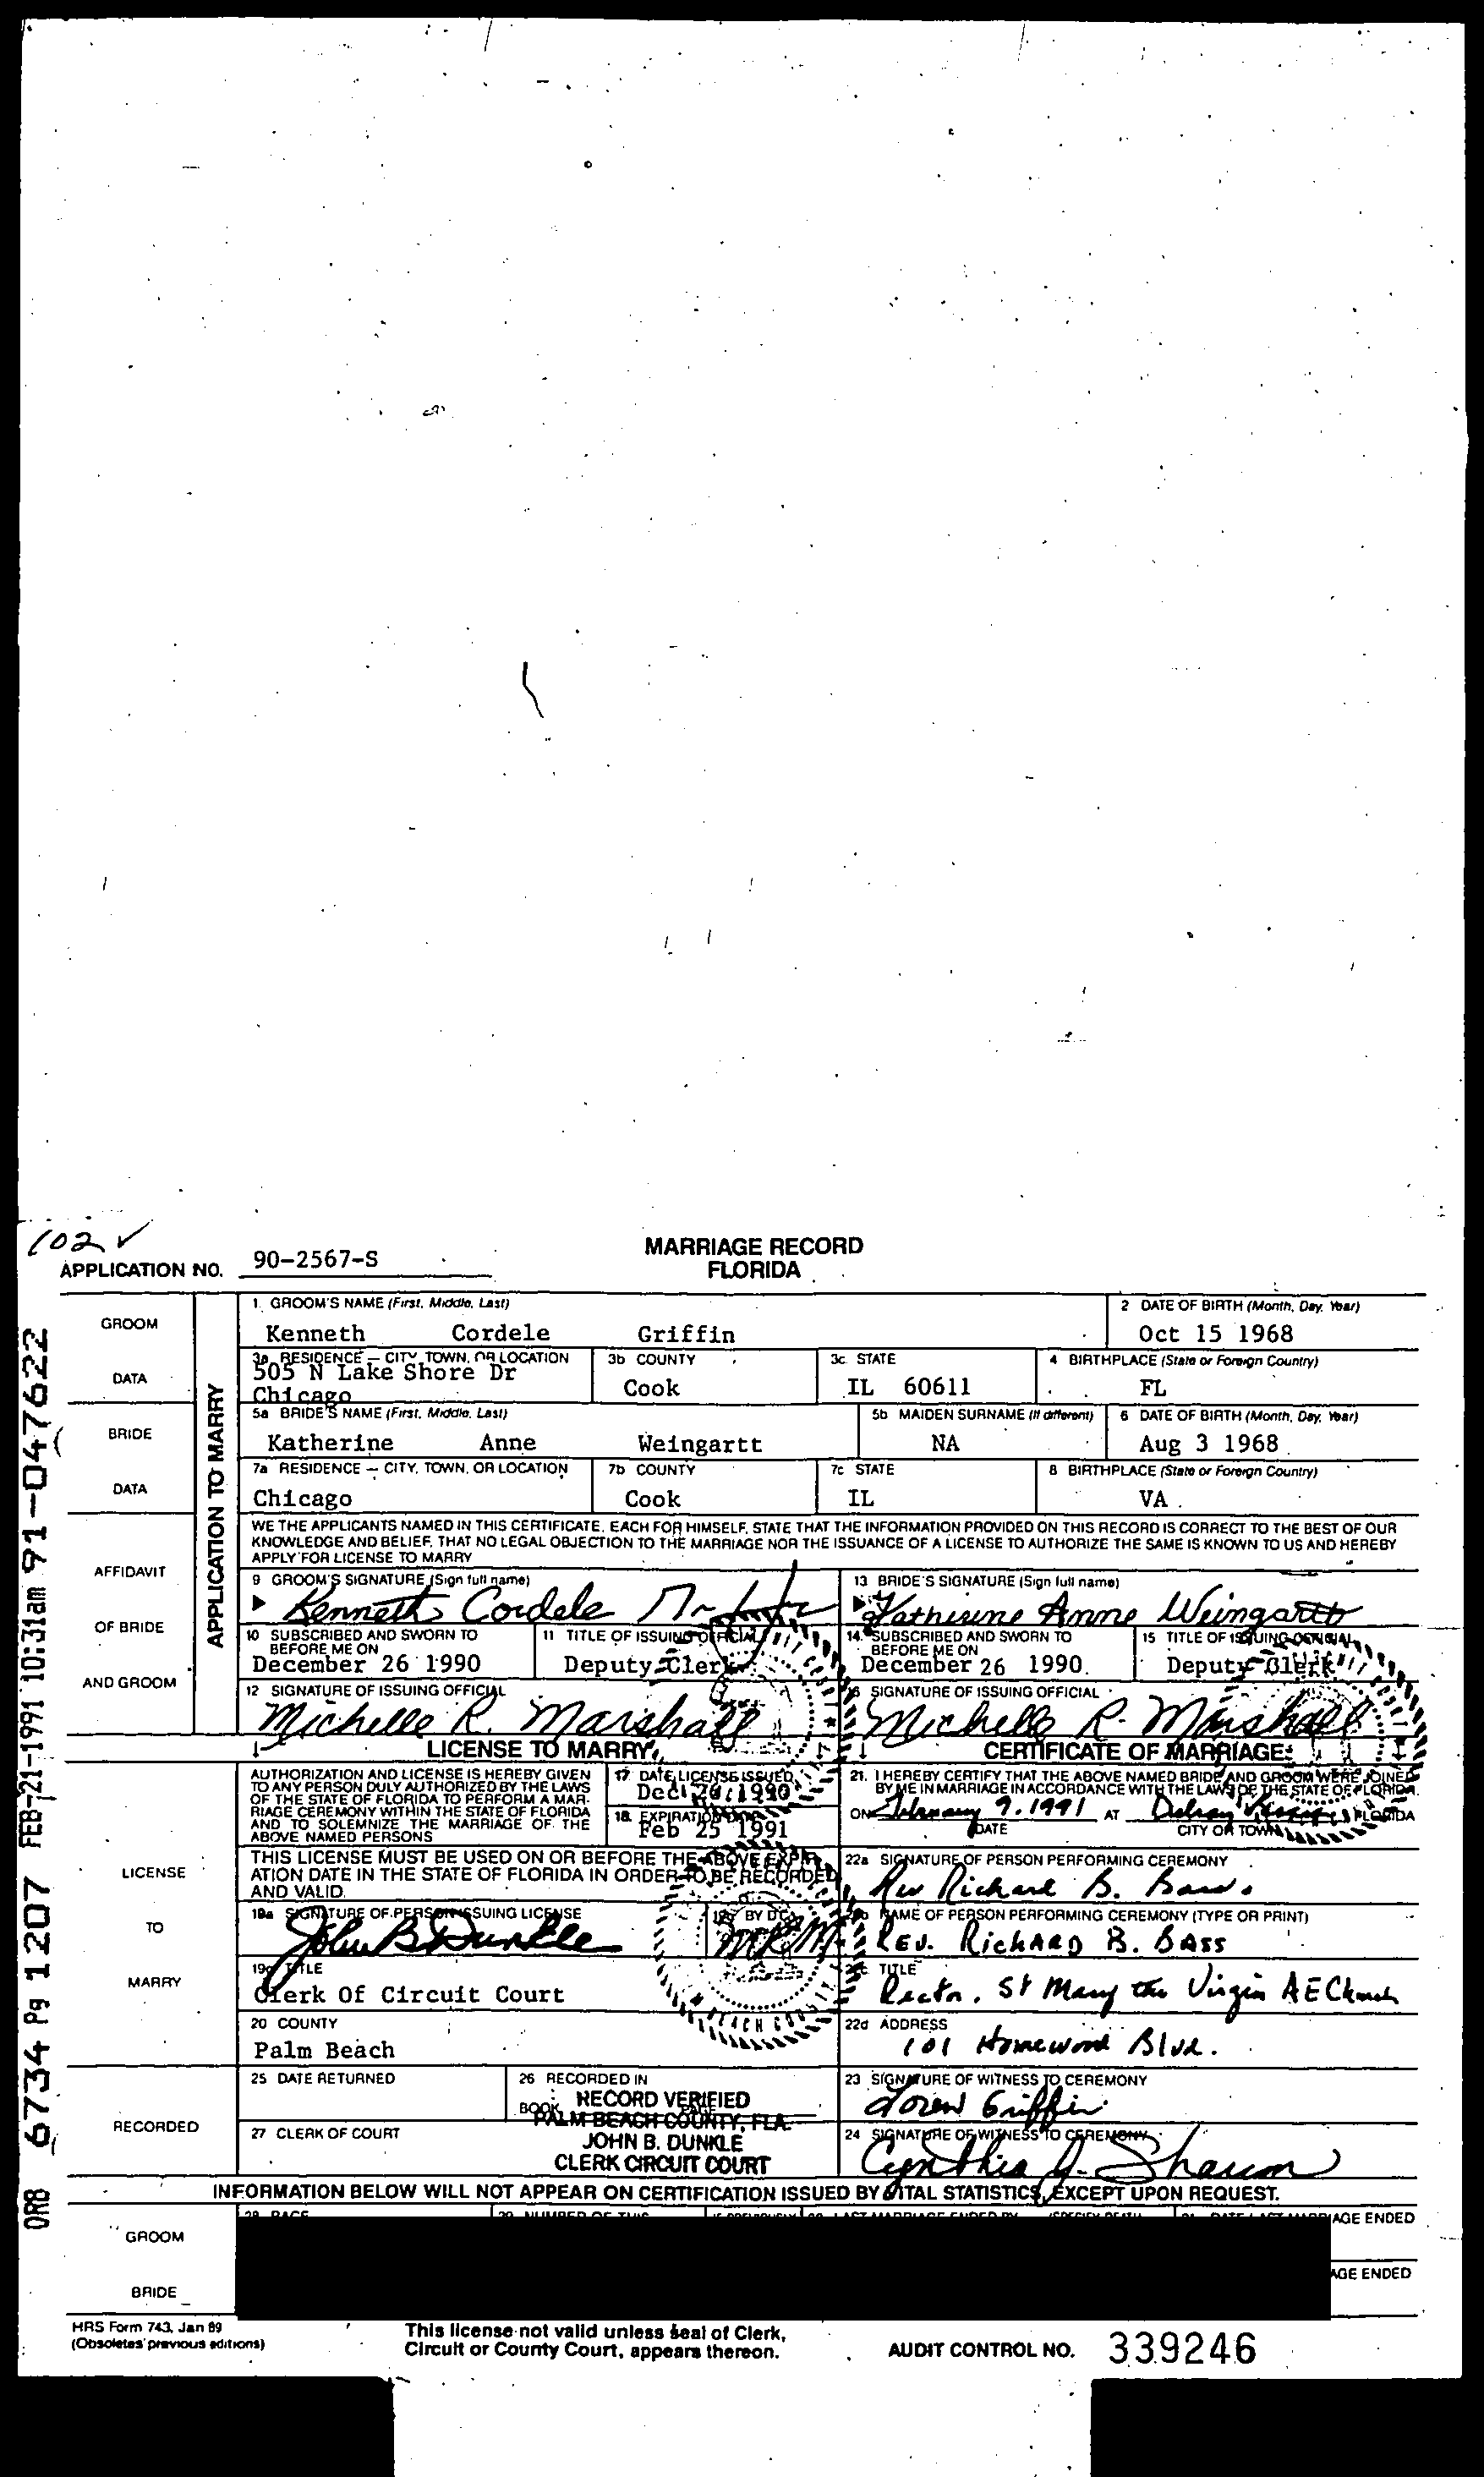 102 ✓
APPLICATION NO. 90-2567-S
MARRIAGE RECORD
FLORIDA
ORB 6734 Pg 1207 FEB-21-1991 10:31am 91-047622
APPLICATION TO MARRY
GROOM
DATA
1. GROOM'S NAME (First, Middle, Last)
Kenneth Cordele Griffin
2 DATE OF BIRTH (Month, Day, Year)
Oct 15 1968
3a RESIDENCE — CITY, TOWN, OR LOCATION
505 N Lake Shore Dr
Chicago
3b COUNTY
Cook
3c STATE
IL 60611
4 BIRTHPLACE (State or Foreign Country)
FL
BRIDE
DATA
5a BRIDE'S NAME (First, Middle, Last)
Katherine Anne Weingartt
5b MAIDEN SURNAME (If different)
NA
6 DATE OF BIRTH (Month, Day, Year)
Aug 3 1968
7a RESIDENCE — CITY, TOWN, OR LOCATION
Chicago
7b COUNTY
Cook
7c STATE
IL
8 BIRTHPLACE (State or Foreign Country)
VA
AFFIDAVIT
OF BRIDE
AND GROOM
WE THE APPLICANTS NAMED IN THIS CERTIFICATE, EACH FOR HIMSELF, STATE THAT THE INFORMATION PROVIDED ON THIS RECORD IS CORRECT TO THE BEST OF OUR
KNOWLEDGE AND BELIEF, THAT NO LEGAL OBJECTION TO THE MARRIAGE NOR THE ISSUANCE OF A LICENSE TO AUTHORIZE THE SAME IS KNOWN TO US AND HEREBY
APPLY FOR LICENSE TO MARRY
9 GROOM'S SIGNATURE (Sign full name)
Kenneth Cordele
13 BRIDE'S SIGNATURE (Sign full name)
Katherine Anne Weingartt
10 SUBSCRIBED AND SWORN TO
BEFORE ME ON
December 26 1990
11 TITLE OF ISSUING OFFICIAL
Deputy Clerk
14. SUBSCRIBED AND SWORN TO
BEFORE ME ON
December 26 1990.
15 TITLE OF ISSUING OFFICIAL
Deputy Clerk
12 SIGNATURE OF ISSUING OFFICIAL
Michelle R. Marshall
16 SIGNATURE OF ISSUING OFFICIAL
Michelle R. Marshall
LICENSE TO MARRY
CERTIFICATE OF MARRIAGE
LICENSE
TO
MARRY
AUTHORIZATION AND LICENSE IS HEREBY GIVEN
TO ANY PERSON DULY AUTHORIZED BY THE LAWS
OF THE STATE OF FLORIDA TO PERFORM A MAR-
RIAGE CEREMONY WITHIN THE STATE OF FLORIDA
AND TO SOLEMNIZE THE MARRIAGE OF THE
ABOVE NAMED PERSONS
17 DATE LICENSE ISSUED
Dec 26 1990
18. EXPIRATION DATE
Feb 25 1991
THIS LICENSE MUST BE USED ON OR BEFORE THE ABOVE EXPIR-
ATION DATE IN THE STATE OF FLORIDA IN ORDER TO BE RECORDED
AND VALID.
19a SIGNATURE OF PERSON ISSUING LICENSE
John B Dunkle
19b BY DC
MRM
19c TITLE
Clerk Of Circuit Court
20 COUNTY
Palm Beach
21. I HEREBY CERTIFY THAT THE ABOVE NAMED BRIDE AND GROOM WERE JOINED
BY ME IN MARRIAGE IN ACCORDANCE WITH THE LAWS OF THE STATE OF FLORIDA.
ON February 9, 1991 AT Delray FLORIDA
DATE
CITY OR TOWN
22a SIGNATURE OF PERSON PERFORMING CEREMONY
Rev Richard B. Bass
22b NAME OF PERSON PERFORMING CEREMONY (TYPE OR PRINT)
REV. RICHARD B. BASS
22c TITLE
Rector, St Mary the Virgin AEChurch
22d ADDRESS
101 Homewood Blvd.
RECORDED
25 DATE RETURNED
26 RECORDED IN
BOOK PAGE
RECORD VERIFIED
PALM BEACH COUNTY, FLA.
JOHN B. DUNKLE
CLERK CIRCUIT COURT
27 CLERK OF COURT
23 SIGNATURE OF WITNESS TO CEREMONY
Loren Griffin
24 SIGNATURE OF WITNESS TO CEREMONY
Cynthia J. Sharum
INFORMATION BELOW WILL NOT APPEAR ON CERTIFICATION ISSUED BY VITAL STATISTICS, EXCEPT UPON REQUEST.
GROOM
AGE ENDED
BRIDE
AGE ENDED
HRS Form 743, Jan 89
(Obsoletes previous editions)
This license not valid unless seal of Clerk,
Circuit or County Court, appears thereon.
AUDIT CONTROL NO. 339246